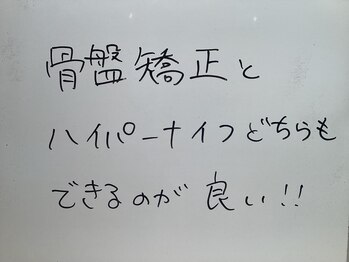 骨盤矯正と
ハイパーナイフどちらも
できるのが良い!!